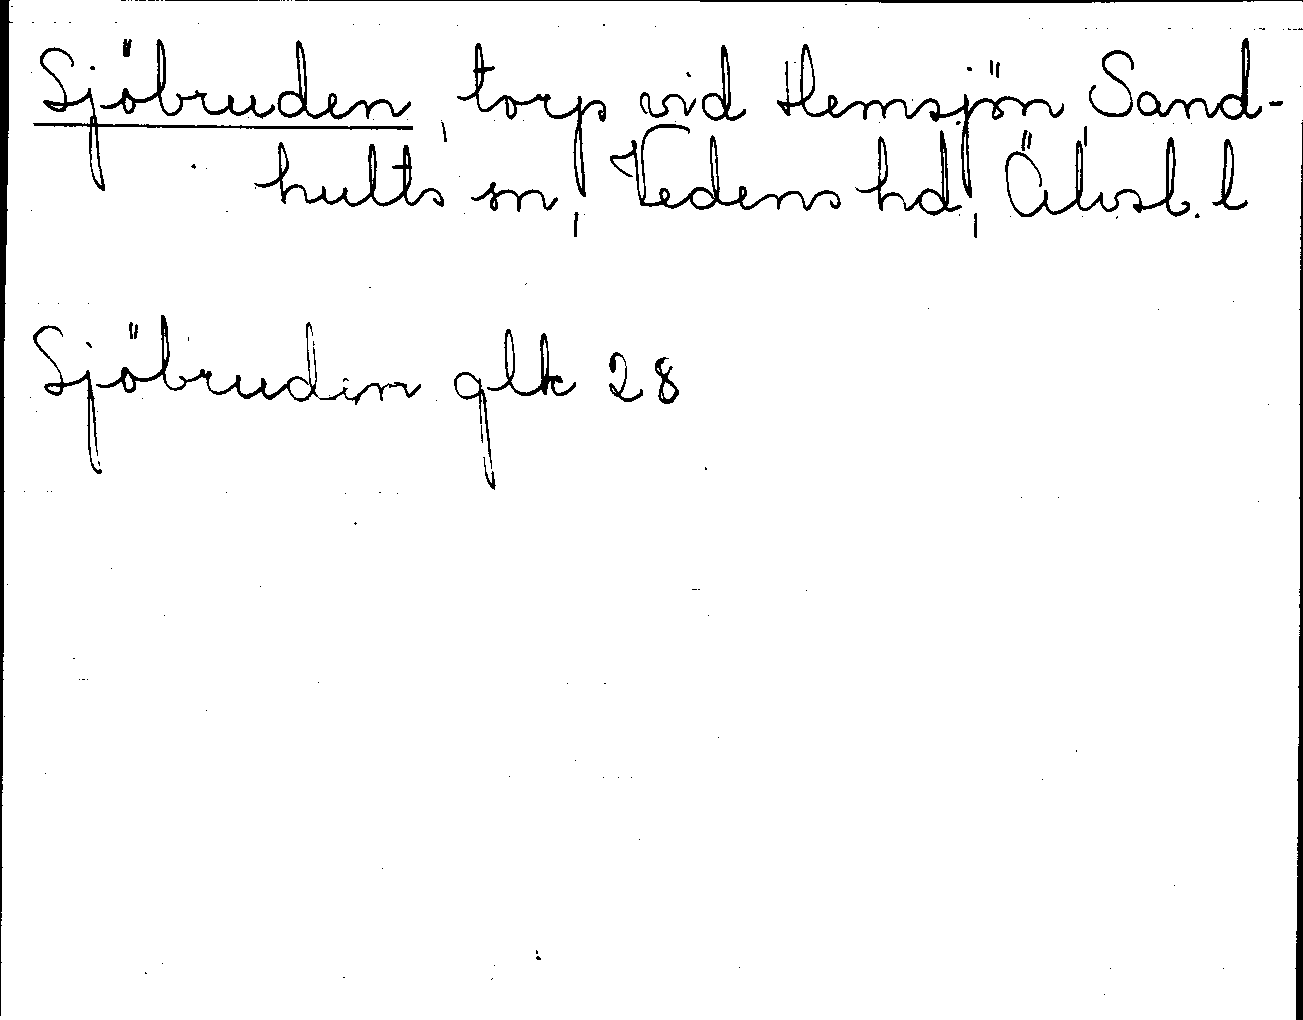 Sjöbruden, torp vid Hemsjön, Sand-
hults sn, Vedens hd, Älvsb. l
Sjöbruden glk 28